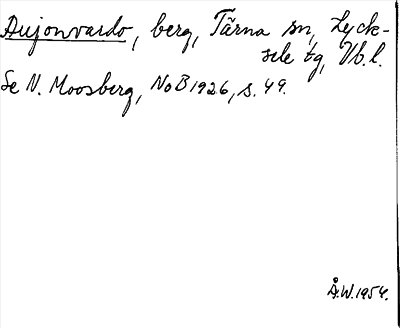 Aujonvardo, berg, Tärna sn, Lyck-
sele tg, Vb.l.
Se N. Moosberg, NoB 1926, s. 49.
Å.W. 1954.